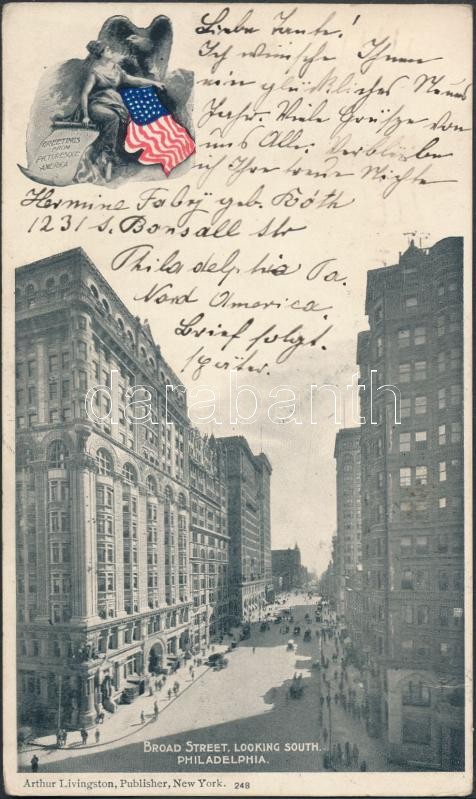 Liebe Tante!
Ich wünsche Ihnen
ein glückliches Neues
Jahr. Viele Grüsze von
uns Alle. Verbleibe
ich Ihre treue Nichte
GREETINGS
FROM
PICTURESQUE
AMERICA
Hermine Fabrÿ geb. Róth
1231 S. Bonsall Str
Philadelphia Pa.
Nord America.
Brief folgt.
später.
darabanth
BROAD STREET, LOOKING SOUTH.
PHILADELPHIA.
Arthur Livingston, Publisher, New York. 248